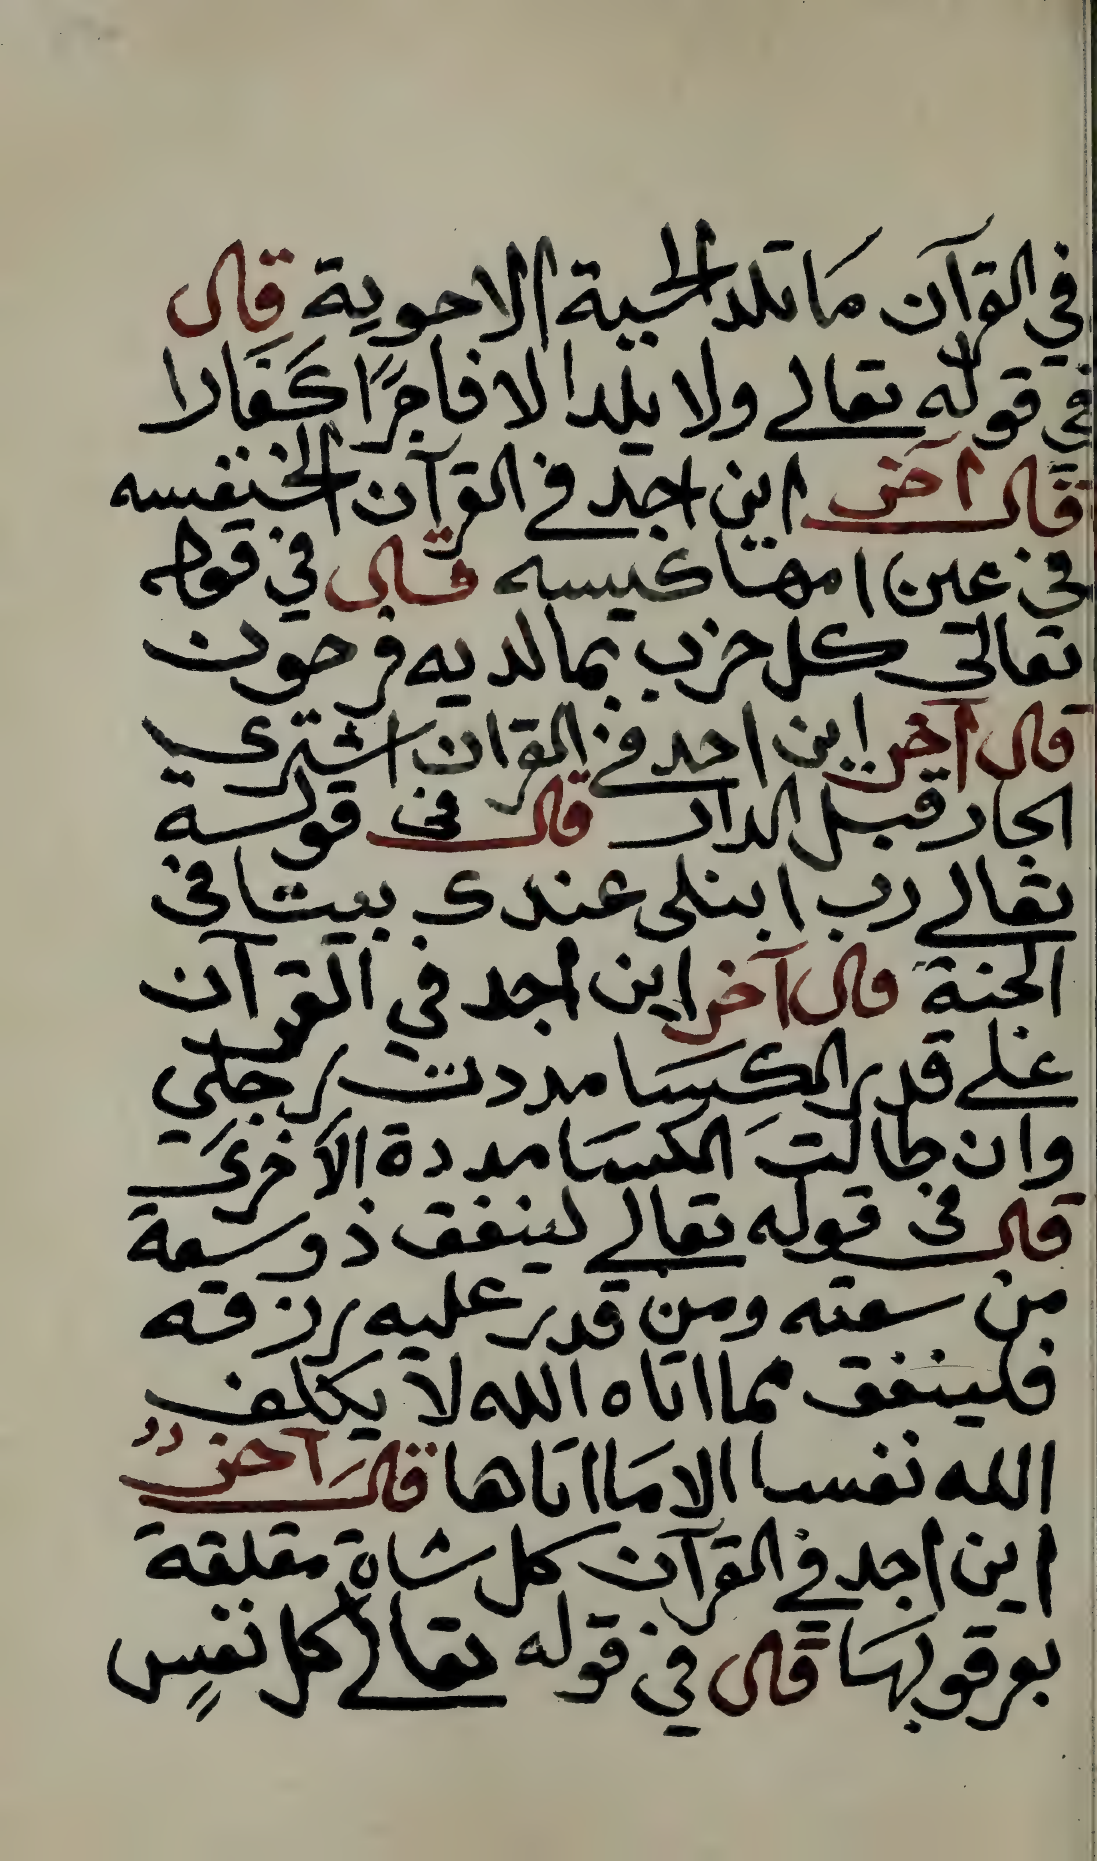 في القرآن مَا تلد الحية الا حوية قال
في قوله تعالى ولا يلدا الا فاجرًا كَفَارا
قَال آخر اين اجد في القرآن الخنفسه
في عين امها كيسه قال في قوله
تعالى كل حزب بما لديه فرحون
قال آخر اين اجد في القران اشتري
الجار قبل الدار قال في قوله
تعالى رب ابنلى عندك بيتا في
الجنة قال آخر اين اجد في القرآن
على قدر الكسَا مددت رجلي
وان طالتَ الكسَا مددة الاَخرىَ
قال في قوله تعالى لينفق ذو سعة
من سعته ومن قدر عليه رزقه
فلينفق مما اتاه الله لا يكلف
الله نفسا الا مَا اتَاها قال آخر
اين اجد في القرآن كل شاة مقلقة
بعرقوبهَا قَال في قوله تعالى كل نفسٍ